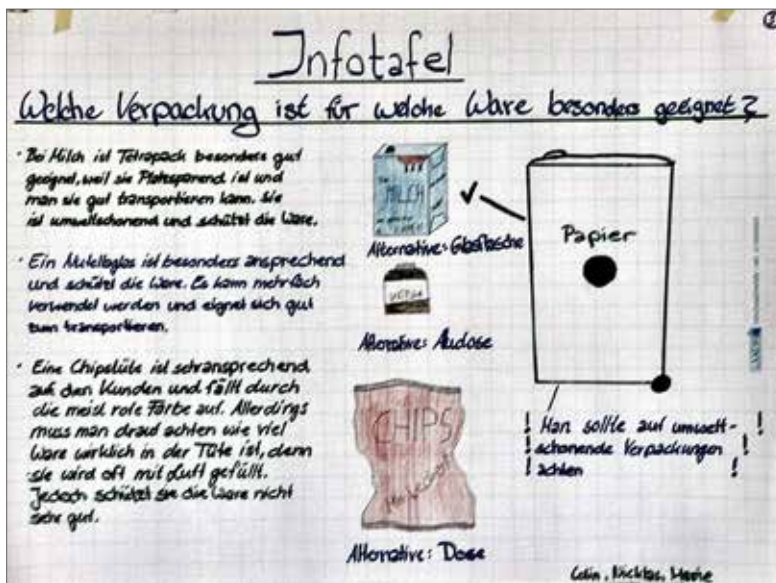 Infotafel
Welche Verpackung ist für welche Ware besonders geeignet?
· Bei Milch ist Tetrapack besonders gut
geeignet, weil sie Platzsparend ist und
man sie gut transportieren kann. Sie
ist umweltschonend und schützt die Ware.
· Ein Nutellaglas ist besonders ansprechend
und schützt die Ware. Es kann mehrfach
verwendet werden und eignet sich gut
zum transportieren.
· Eine Chipstüte ist sehr ansprechend
auf den Kunden und fällt durch
die meist rote Farbe auf. Allerdings
muss man drauf achten wie viel
Ware wirklich in der Tüte ist, denn
sie wird oft mit Luft gefüllt.
Jedoch schützt sie die Ware nicht
sehr gut.
MILCH
Alternative: Glasflasche
Alternative: Aludose
CHIPS
Alternative: Dose
Papier
! Man sollte auf umwelt- !
! schonende Verpackungen !
! achten !
Colin, Nicklas,